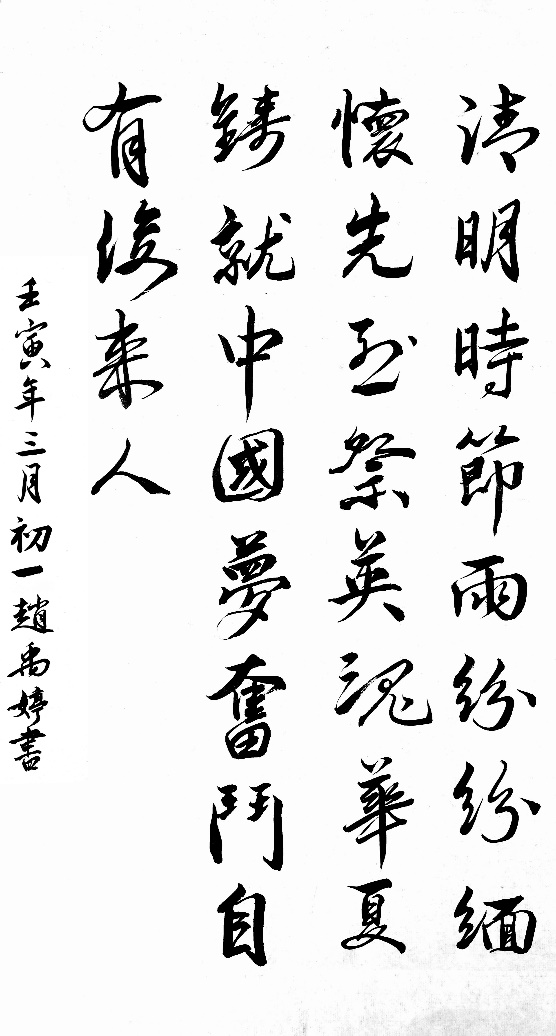 清明時節雨紛紛緬
懷先烈祭英魂華夏
鑄就中國夢奮鬥自
有後來人
壬寅年三月初一趙禹婷書